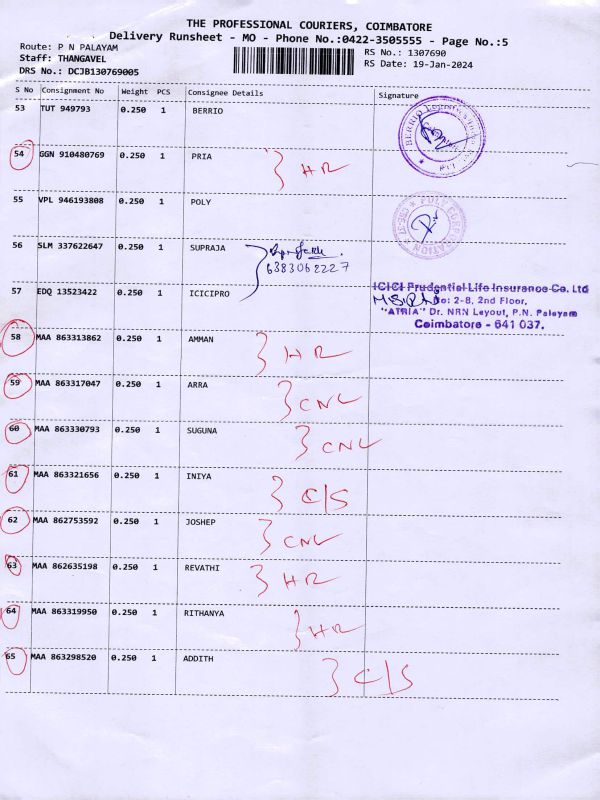 THE PROFESSIONAL COURIERS, COIMBATORE
Delivery Runsheet - MO - Phone No.:0422-3505555 - Page No.:5
Route: P N PALAYAM
Staff: THANGAVEL
DRS No.: DCJB130769005
RS No.: 1307690
RS Date: 19-Jan-2024
S No Consignment No Weight PCS Consignee Details Signature
53 TUT 949793 0.250 1 BERRIO
54 GGN 910480769 0.250 1 PRIA HR
55 VPL 946193808 0.250 1 POLY
56 SLM 337622647 0.250 1 SUPRAJA
6383062227
57 EDQ 13523422 0.250 1 ICICIPRO
ICICI Prudential Life Insurance Co. Ltd
No: 2-8, 2nd Floor,
"ATRIA" Dr. NRN Leyout, P.N. Paleyam
Coimbatore - 641 037.
58 MAA 863313862 0.250 1 AMMAN HR
59 MAA 863317047 0.250 1 ARRA CNL
60 MAA 863330793 0.250 1 SUGUNA CNL
61 MAA 863321656 0.250 1 INIYA C/S
62 MAA 862753592 0.250 1 JOSHEP CNL
63 MAA 862635198 0.250 1 REVATHI HR
64 MAA 863319950 0.250 1 RITHANYA HR
65 MAA 863298520 0.250 1 ADDITH C/S